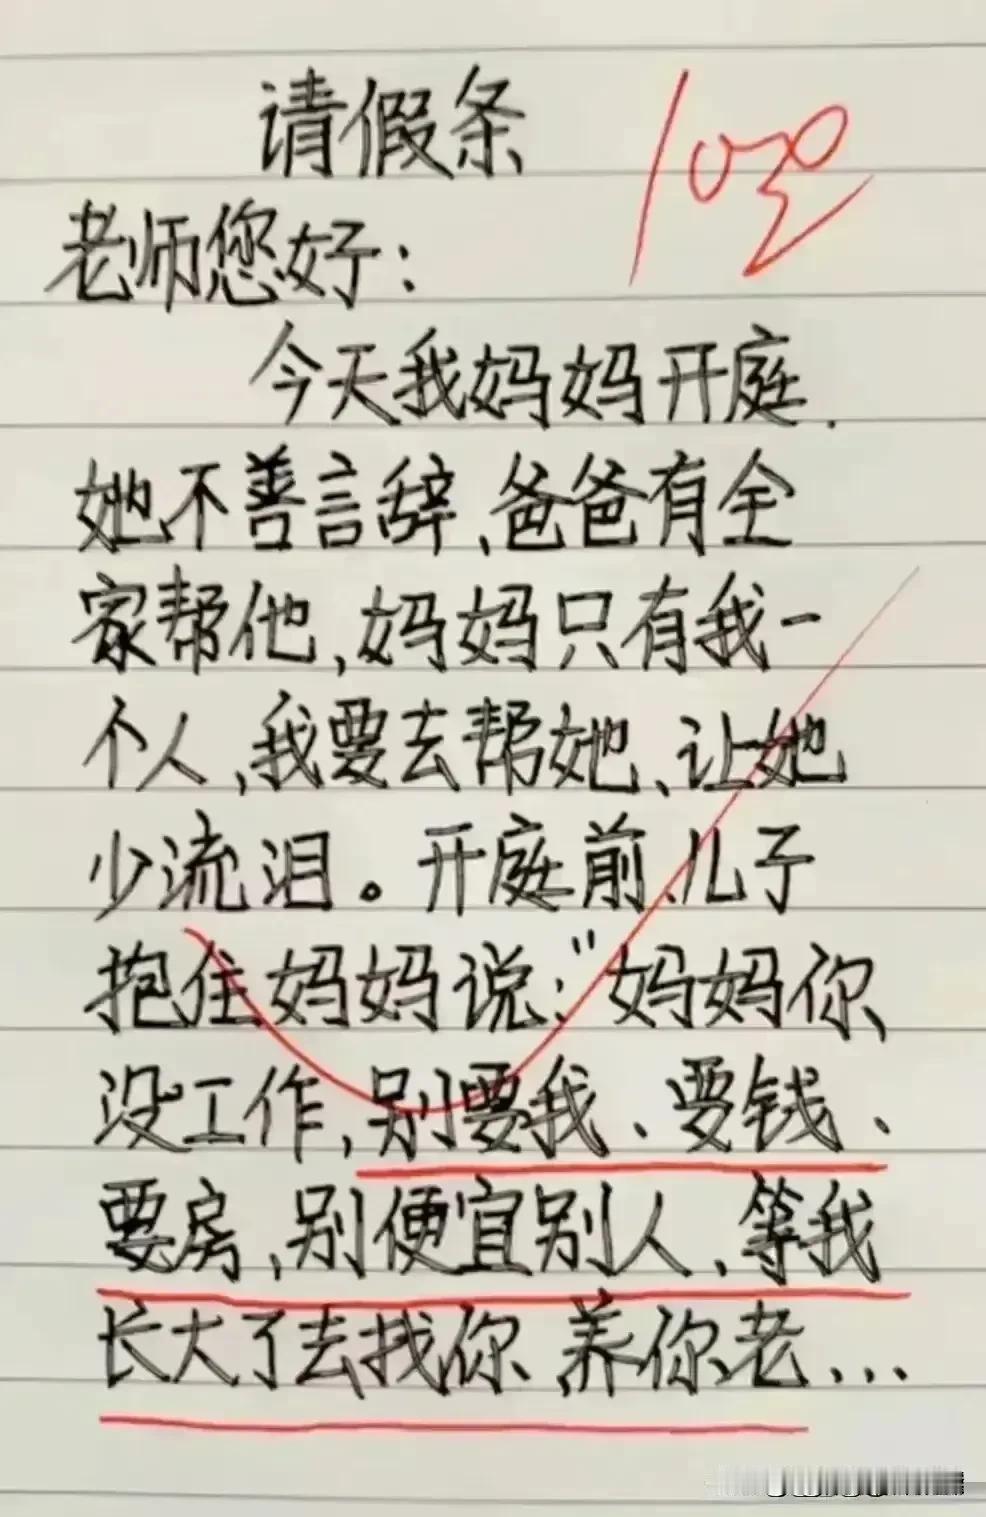 请假条
100
老师您好：
今天我妈妈开庭.
她不善言辞、爸爸有全
家帮他，妈妈只有我一
个人，我要去帮她、让她
少流泪。开庭前、儿子
抱住妈妈说："妈妈你、
没工作，别要我、要钱、
要房，别便宜别人，等我
长大了去找你、养你老...